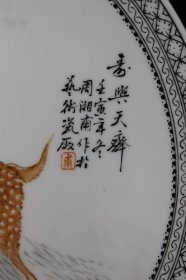 寿與天齊
壬寅年冬
周湘甫作於
藝術瓷厰
甫